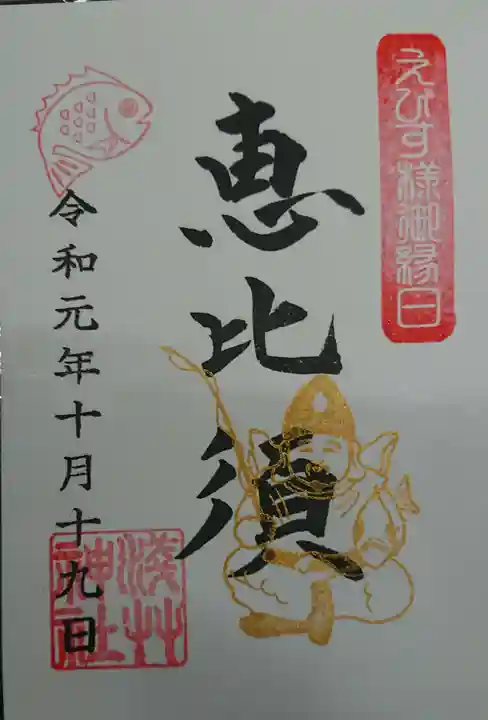 えびす様御縁日
恵比須
令和元年十月十九日
淺草神社